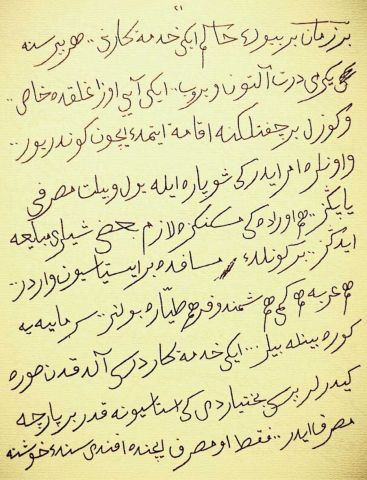 ٢١
بر زمان بر بیوك حاكم ایكی خدمه كارینی .. هر بریسنه
یكرمی درت آلتون ویروب .. ایكی آیی اوزاغلقده خاص ..
و گوزل بر چفتلكنه اقامه ایتمك ایچون كوندریور ..
و اونلره امر ایدر كی شو پاره ایله یول و بیلت مصرفی
یاپڭز .. هم اوراده كی مسكنڭزه لازم بعض شیلری مبایعه
ایدڭز .. بر كونلك مسافه ده بر ایستاسیون واردر ..
هم عربه هم كمی هم شمندوفر هم طیاره بولنر .. سرمایه یه
كوره بینله بیلر ... ایكی خدمه كار درسی آلدقدن صوره
كیدرلر بریسی بختیاردی كی استاسیونه قدر بر پارچه
مصرف ایدر .. فقط او مصرف ایچنده افندی سنڭ خوشنه